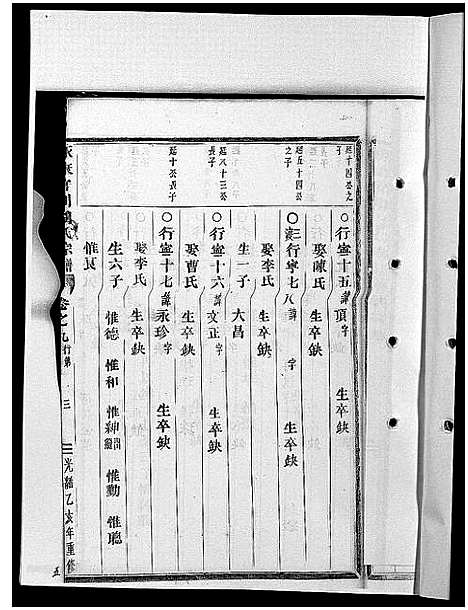 延十四公之
子
〇行寧十五諱頂字 生卒缺
娶陳氏 生卒缺
延五十四公
之子
〇行寧七諱字 生卒缺
娶李氏 生卒缺
生一子 大昌
延八十三公
長子
〇行寧十六諱文正字 生卒缺
娶曹氏 生卒缺
延十公長子
〇行寧十七諱永珍字 生卒缺
娶李氏 生卒缺
生六子 惟德 惟和 惟紳 惟勤 惟聰
惟良
氏宗譜 卷之九行第 三 光緒乙亥年重修
五